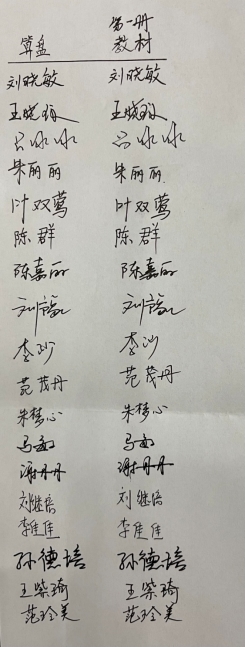 第一册
算盘 教材
刘晓敏 刘晓敏
王晓 王晓
吕冰冰 吕冰冰
朱丽丽 朱丽丽
叶双莺 叶双莺
陈群 陈群
陈嘉丽 陈嘉丽
刘 刘
李沙 李沙
范茂丹 范茂丹
朱梦心 朱梦心
马 马
谢丹丹 谢丹丹
刘继信 刘继信
李佳佳 李佳佳
孙德培 孙德培
王紫琦 王紫琦
范玲美 范玲美